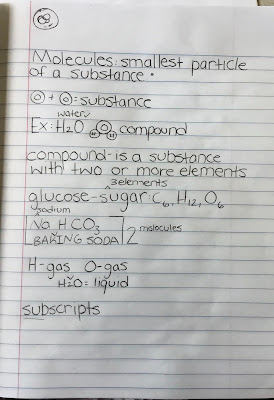 68
Molecules: smallest particle
of a substance.
O + O = substance
water
Ex: H2O O H H compound
compound-is a substance
with two or more elements
3 elements
glucose-sugar: C6, H12, O6
sodium
Na H CO3
BAKING SODA 2 molecules
H-gas O-gas
H2O = liquid
subscripts